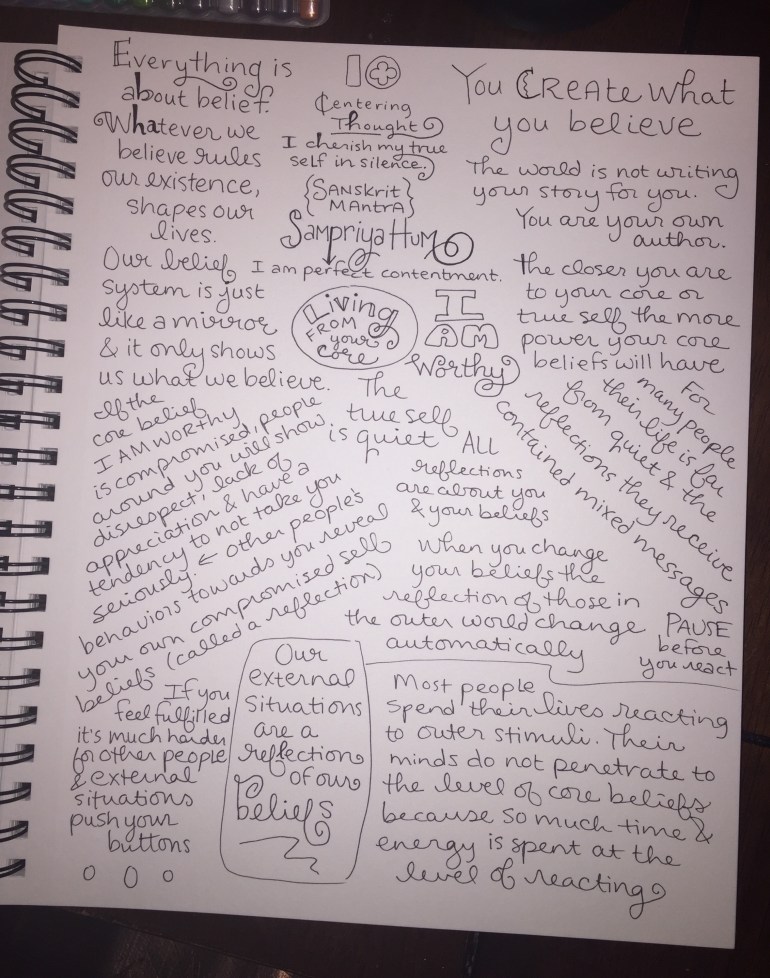 Everything is
about belief.
Whatever we
believe rules
our existence,
shapes our
lives.
Our belief
system is just
like a mirror
& it only shows
us what we believe.
If the
core belief
I AM WORTHY
is compromised, people
around you will show
disrespect, lack of
appreciation & have a
tendency to not take you
seriously. ← other people's
behaviors towards you reveal
your own compromised self
beliefs (called a reflection)
If you
feel fulfilled
it's much harder
for other people
& external
situations
push your
buttons
Centering
Thought
I cherish my true
self in silence.
{Sanskrit
Mantra}
Sampriya Hum
I am perfect contentment.
Living
FROM
your
core
I
AM
Worthy
The
true self
is quiet
ALL
reflections
are about you
& your beliefs
When you change
your beliefs the
reflection of those in
the outer world change
automatically
Our
external
situations
are a
reflection
of our
Beliefs
You CREATE What
you believe
The world is not writing
your story for you.
You are your own
author.
The closer you are
to your core or
true self the more
power your core
beliefs will have
For
many people
their life is far
from quiet & the
reflections they receive
contained mixed messages
PAUSE
before
you react
Most people
spend their lives reacting
to outer stimuli. Their
minds do not penetrate to
the level of core beliefs
because so much time &
energy is spent at the
level of reacting